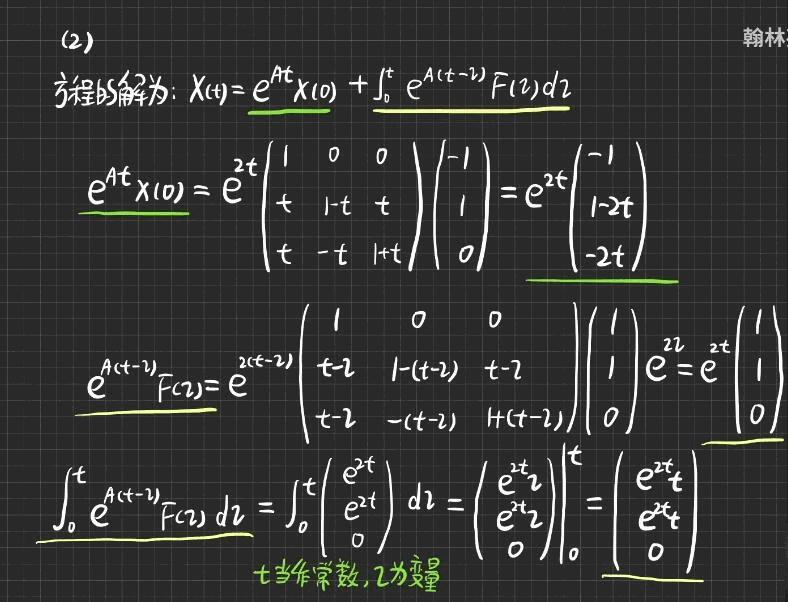 (2)
翰林
方程的解为: X(t) = e^{At} X(0) + ∫_0^t e^{A(t-τ)} F(τ) dτ
e^{At} X(0) = e^{2t} \begin{pmatrix} 1 & 0 & 0 \\ t & 1-t & t \\ t & -t & 1+t \end{pmatrix} \begin{pmatrix} -1 \\ 1 \\ 0 \end{pmatrix} = e^{2t} \begin{pmatrix} -1 \\ 1-2t \\ -2t \end{pmatrix}
e^{A(t-τ)} F(τ) = e^{2(t-τ)} \begin{pmatrix} 1 & 0 & 0 \\ t-τ & 1-(t-τ) & t-τ \\ t-τ & -(t-τ) & 1+(t-τ) \end{pmatrix} \begin{pmatrix} 1 \\ 1 \\ 0 \end{pmatrix} e^{2τ} = e^{2t} \begin{pmatrix} 1 \\ 1 \\ 0 \end{pmatrix}
∫_0^t e^{A(t-τ)} F(τ) dτ = ∫_0^t \begin{pmatrix} e^{2t} \\ e^{2t} \\ 0 \end{pmatrix} dτ = \begin{pmatrix} e^{2t}τ \\ e^{2t}τ \\ 0 \end{pmatrix} |_0^t = \begin{pmatrix} e^{2t}t \\ e^{2t}t \\ 0 \end{pmatrix}
t当作常数,τ为变量